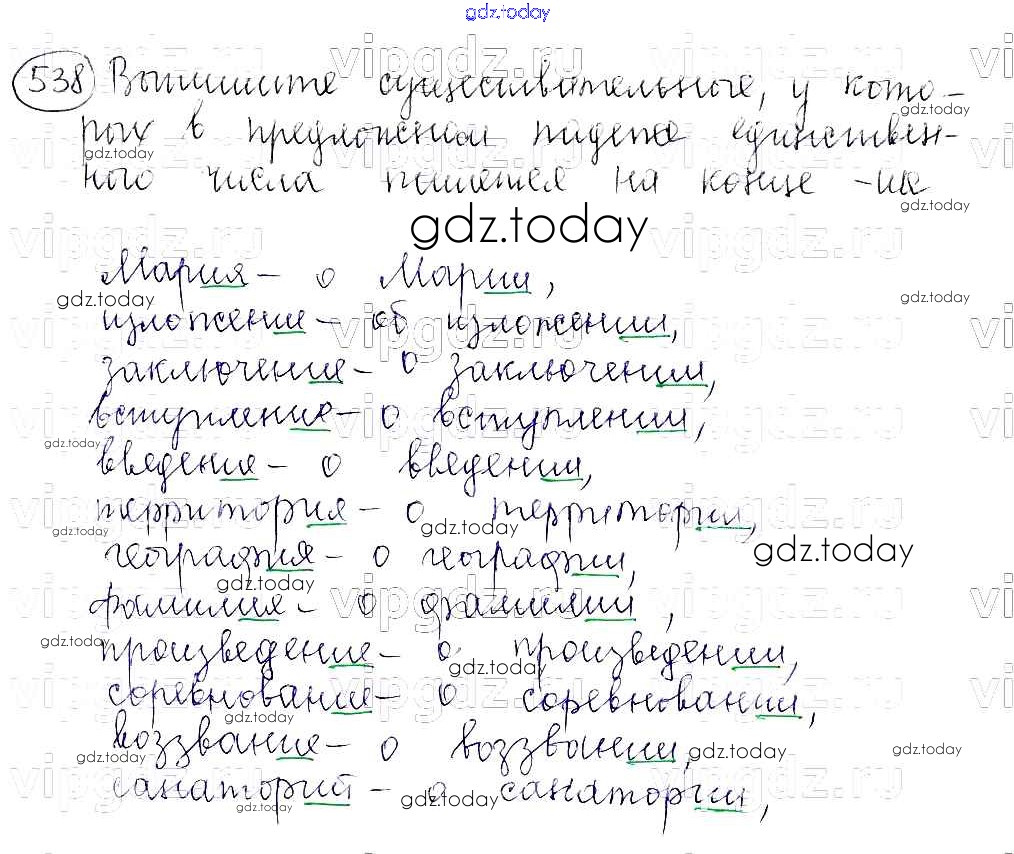 gdz.today
538 Выпишите существительные, у кото-
рых в предложном падеже единствен-
ного числа пишется на конце -ии
gdz.today
Мария - о Марии,
изложение - об изложении,
заключение - о заключении,
вступление - о вступлении,
введение - о введении,
территория - о территории,
география - о географии,
фамилия - о фамилии,
произведение - о произведении,
соревнование - о соревновании,
воззвание - о воззвании,
санаторий - о санатории,